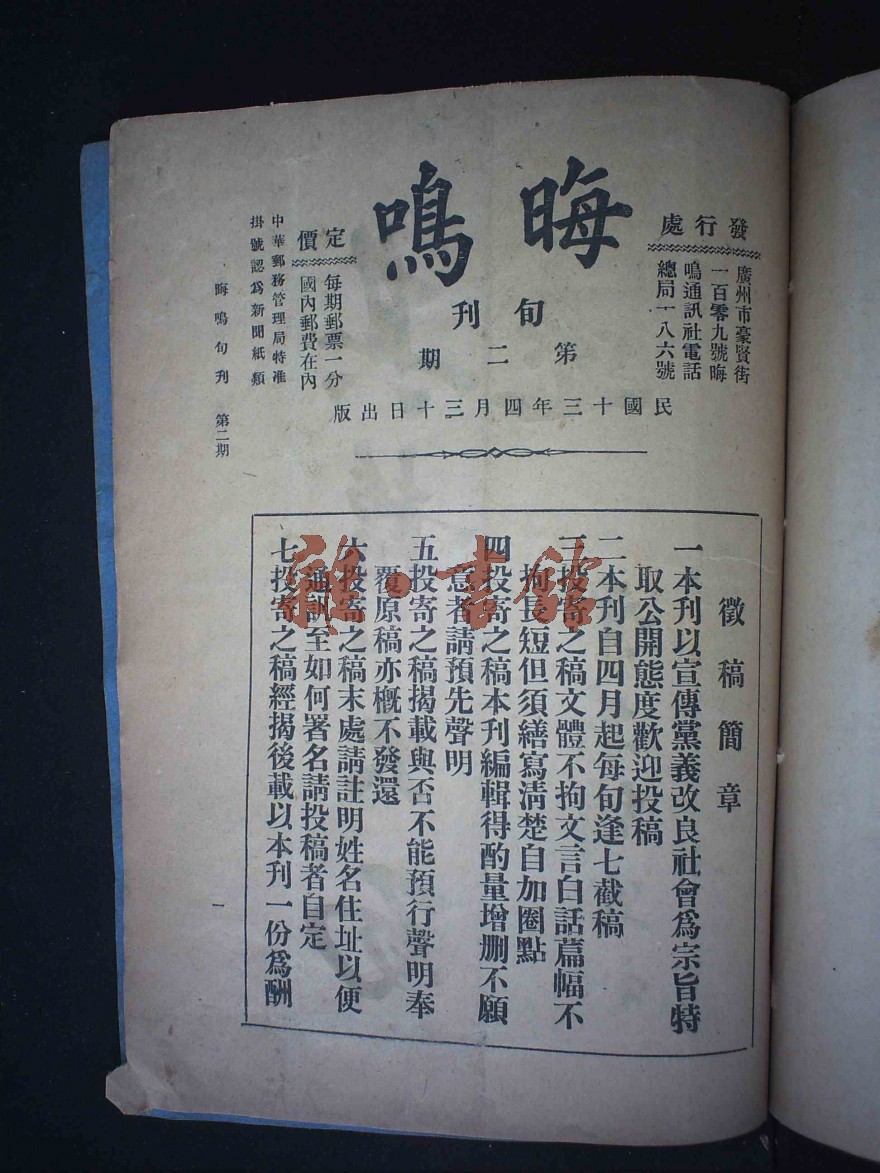 晦鳴
旬刊
第二期
民國十三年四月三十日出版
發行處
廣州市豪賢街
一百零九號晦
鳴通訊社電話
總局一八六號
定價
每期郵票一分
國內郵費在內
中華郵務管理局特准
掛號認為新聞紙類
晦鳴旬刊 第二期
徵稿簡章
一本刊以宣傳黨義改良社會爲宗旨特
取公開態度歡迎投稿
二本刊自四月起每旬逢七截稿
三投寄之稿文體不拘文言白話篇幅不
拘長短但須繕寫清楚自加圈點
四投寄之稿本刊編輯得酌量增刪不願
意者請預先聲明
五投寄之稿揭載與否不能預行聲明奉
覆原稿亦概不發還
六投寄之稿末處請註明姓名住址以便
通訊至如何署名請投稿者自定
七投寄之稿經揭後載以本刊一份爲酬
一
雜·書館